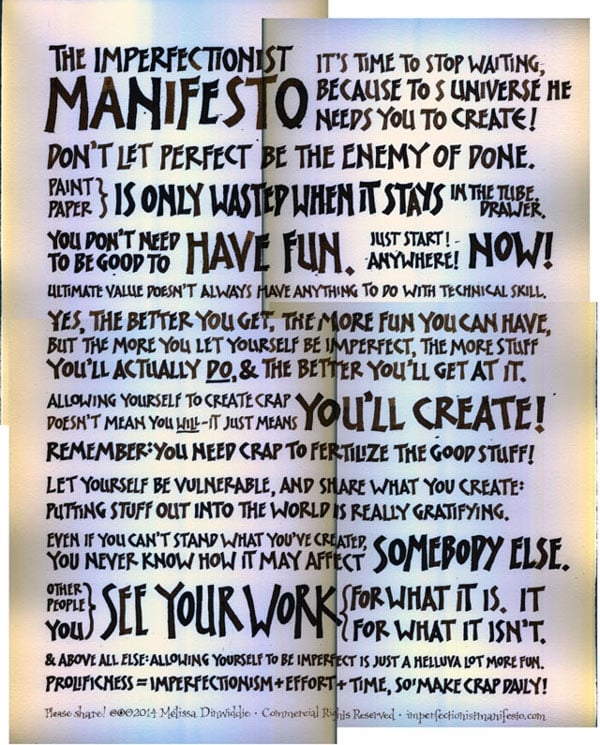 THE IMPERFECTIONIST
MANIFESTO
IT'S TIME TO STOP WAITING,
BECAUSE TO S UNIVERSE HE
NEEDS YOU TO CREATE!
DON'T LET PERFECT BE THE ENEMY OF DONE.
PAINT
PAPER } IS ONLY WASTED WHEN IT STAYS IN THE TUBE.
DRAWER.
YOU DON'T NEED
TO BE GOOD TO HAVE FUN.
JUST START! -
ANYWHERE! NOW!
ULTIMATE VALUE DOESN'T ALWAYS HAVE ANYTHING TO DO WITH TECHNICAL SKILL.
YES, THE BETTER YOU GET, THE MORE FUN YOU CAN HAVE,
BUT THE MORE YOU LET YOURSELF BE IMPERFECT, THE MORE STUFF
YOU'LL ACTUALLY DO, & THE BETTER YOU'LL GET AT IT.
ALLOWING YOURSELF TO CREATE CRAP
DOESN'T MEAN YOU WILL - IT JUST MEANS YOU'LL CREATE!
REMEMBER: YOU NEED CRAP TO FERTILIZE THE GOOD STUFF!
LET YOURSELF BE VULNERABLE, AND SHARE WHAT YOU CREATE:
PUTTING STUFF OUT INTO THE WORLD IS REALLY GRATIFYING.
EVEN IF YOU CAN'T STAND WHAT YOU'VE CREATED,
YOU NEVER KNOW HOW IT MAY AFFECT SOMEBODY ELSE.
OTHER
PEOPLE
YOU } SEE YOUR WORK { FOR WHAT IT IS. IT
FOR WHAT IT ISN'T.
& ABOVE ALL ELSE: ALLOWING YOURSELF TO BE IMPERFECT IS JUST A HELLUVA LOT MORE FUN.
PROLIFICNESS = IMPERFECTIONISM + EFFORT + TIME, SO MAKE CRAP DAILY!
Please share! 2014 Melissa Dinwiddie · Commercial Rights Reserved · imperfectionistmanifesto.com